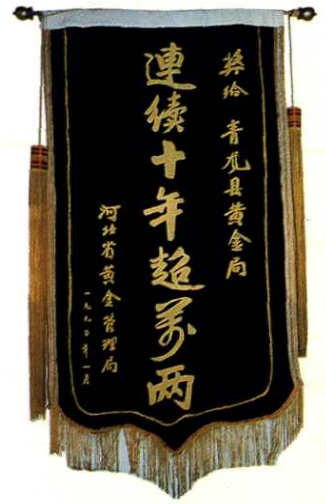 奖给 青龙县黄金局
連續十年超万两
河北省黄金管理局
一九九〇年一月